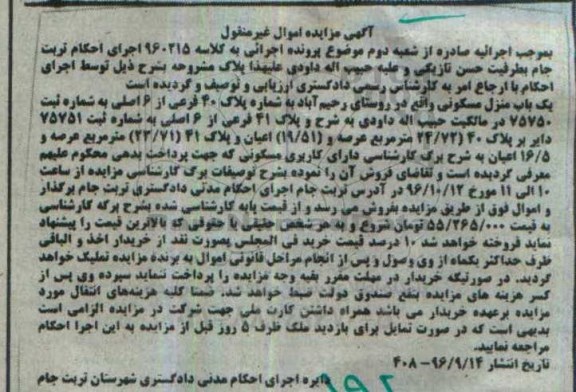 آگهی مزایده اموال غیرمنقول
بموجب اجرائیه صادره از شعبه دوم موضوع پرونده اجرائی به کلاسه ۹۶۰۲۱۵ اجرای احکام تربت
جام بطرفیت حسن تازیکی و علیه حبیب اله داودی علیهذا پلاک مشروحه بشرح ذیل توسط اجرای
احکام با ارجاع امر به کارشناس رسمی دادگستری ارزیابی و توصیف و گردیده است
یک باب منزل مسکونی واقع در روستای رحیم آباد به شماره پلاک ۴۰ فرعی از ۶ اصلی به شماره ثبت
۷۵۷۵۰ در مالکیت حبیب اله داودی به شرح و پلاک ۴۱ فرعی از ۶ اصلی به شماره ثبت ۷۵۷۵۱
دایر بر پلاک ۴۰ (۲۴/۷۲ مترمربع عرصه و (۱۹/۵۱) اعیان و پلاک ۴۱ (۲۳/۷۱) مترمربع عرصه و
۱۶/۵ اعیان به شرح برگ کارشناسی دارای کاربری مسکونی که جهت پرداخت بدهی محکوم علیهم
معرفی گردیده است و تقاضای فروش آن را نموده بشرح توصیفات برگ کارشناسی مزایده از ساعت
۱۰ الی ۱۱ مورخ ۹۶/۱۰/۱۲ در آدرس تربت جام اجرای احکام مدنی دادگستری تربت جام برگذار
و اموال فوق از طریق مزایده بفروش می رسد و از قیمت پایه کارشناسی شده بشرح برگه کارشناسی
به قیمت ۵۵/۲۶۵/۰۰۰ تومان شروع و به هر شخص حقیقی یا حقوقی که بالاترین قیمت را پیشنهاد
نماید فروخته خواهد شد ۱۰ درصد قیمت خرید فی المجلس بصورت نقد از خریدار اخذ و الباقی
ظرف حداکثر یکماه از وی وصول و پس از انجام مراحل قانونی اموال به برنده مزایده تملیک خواهد
گردید. در صورتیکه خریدار در مهلت مقرر بقیه وجه مزایده را پرداخت ننماید سپرده وی پس از
کسر هزینه های مزایده بنفع صندوق دولت ضبط خواهد شد. ضمنا کلیه هزینه‌های انتقال مورد
مزایده برعهده خریدار می باشد همراه داشتن کارت ملی جهت شرکت در مزایده الزامی است
بدیهی است که در صورت تمایل برای بازدید ملک ظرف ۵ روز قبل از مزایده به این اجرا احکام
مراجعه نمایید.
تاریخ انتشار ۹۶/۹/۱۴-۴۰۸
دایره اجرای احکام مدنی دادگستری شهرستان تربت جام